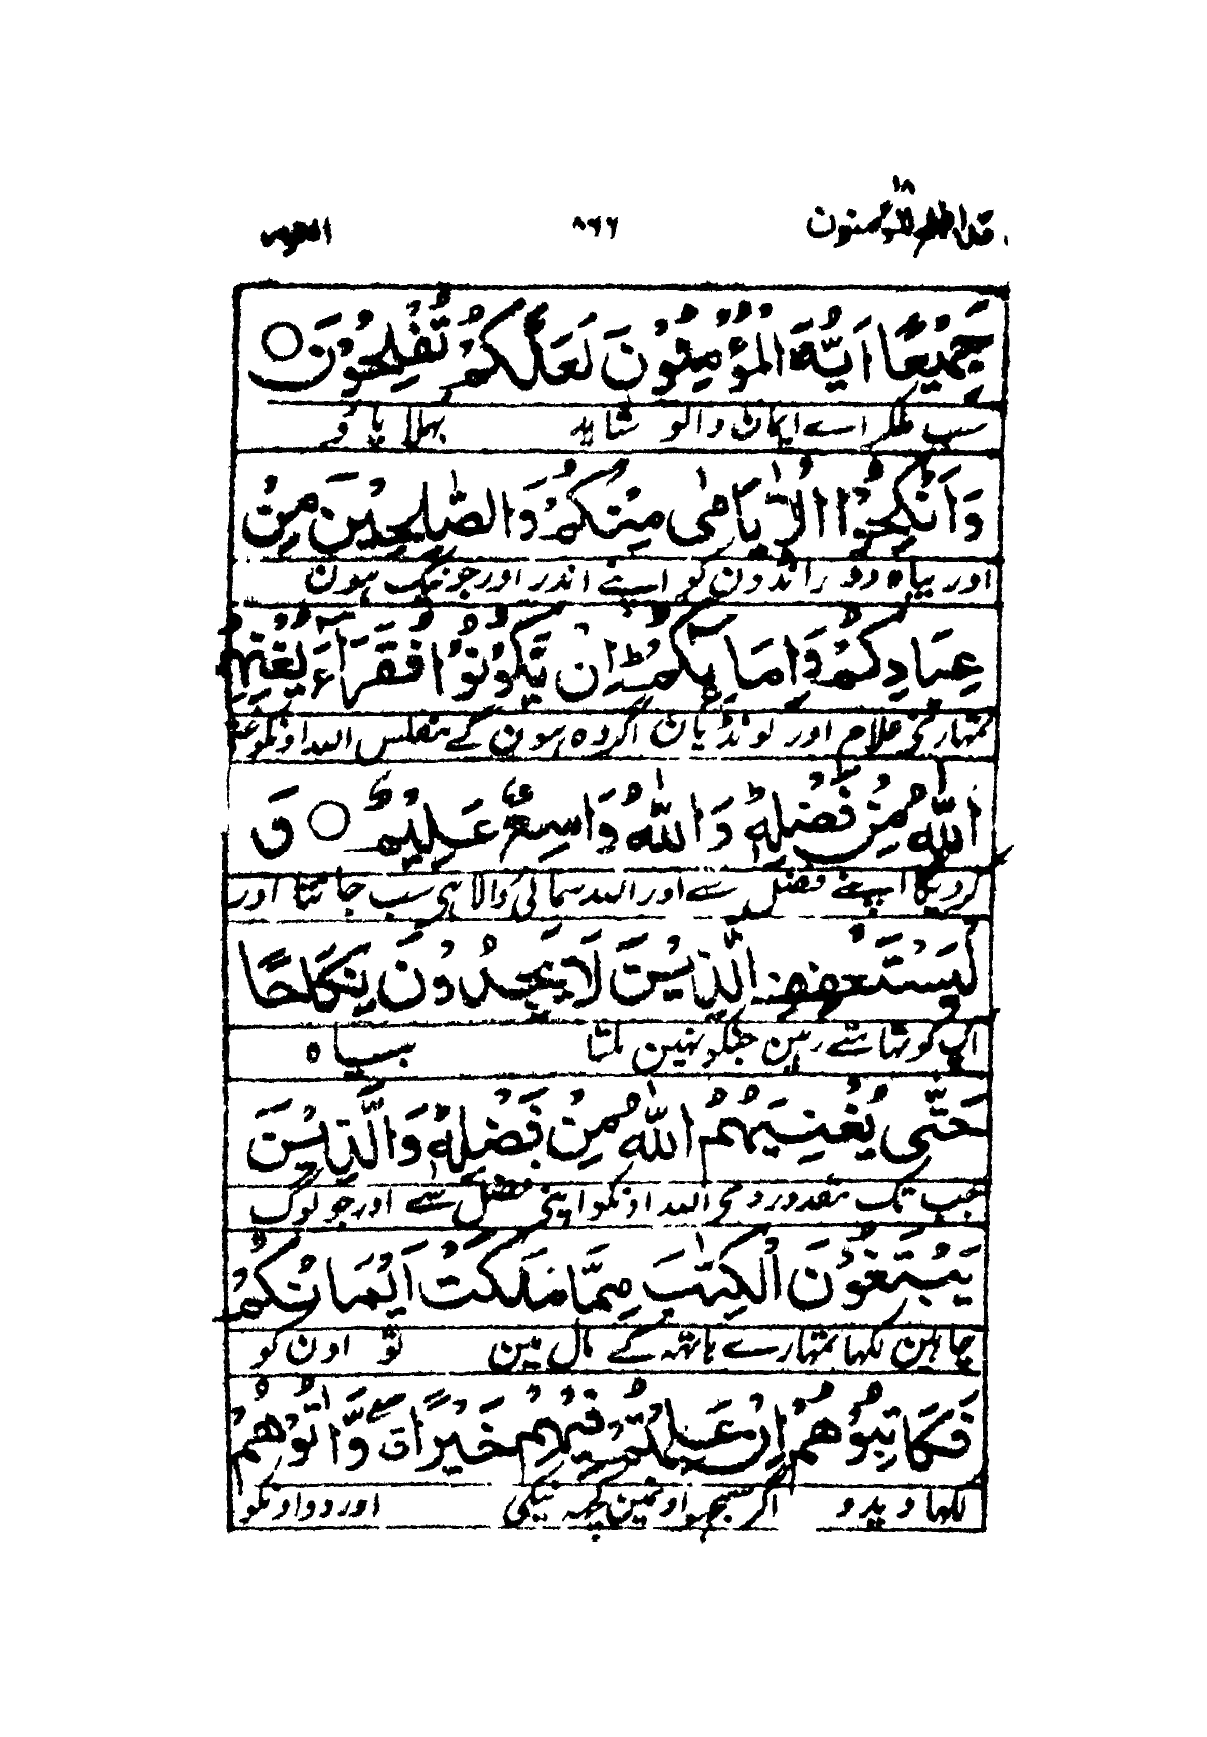 قد افلح المؤمنون ١٨
٨٦٦
النور
جَمِيعًا اَيُّهَ الْمُؤْمِنُونَ لَعَلَّكُمْ تُفْلِحُونَ ○
سب ملکر اے ایمان والو شاید بھلا پاؤ
وَاَنْكِحُوا الْاَيَامٰى مِنْكُمْ وَالصّٰلِحِيْنَ مِنْ
اور بیاہ دو رانڈون کو اپنے اندر اور جو نیک ہون
عِبَادِكُمْ وَاِمَآئِكُمْ اِنْ يَّكُوْنُوْا فُقَرَآءَ يُغْنِهِمُ
تمہارے غلام اور لونڈیان اگر وہ ہون گے مفلس اللہ اونکو غنی
اللّٰهُ مِنْ فَضْلِهٖ وَاللّٰهُ وَاسِعٌ عَلِيْمٌ ○ وَ
کردیگا اپنے فضل سے اور اللہ سمائی والا ہی سب جانتا اور
لْيَسْتَعْفِفِ الَّذِيْنَ لَا يَجِدُوْنَ نِكَاحًا
آپ کو تھامتے رہین جنکو نہین ملتا بیاہ
حَتّٰى يُغْنِيَهُمُ اللّٰهُ مِنْ فَضْلِهٖ وَالَّذِيْنَ
جب تک مقدور دے اللہ اونکو اپنے فضل سے اور جو لوگ
يَبْتَغُوْنَ الْكِتٰبَ مِمَّا مَلَكَتْ اَيْمَانُكُمْ
چاہین لکھا تمہارے ہاتھ کے مال مین تو اون کو
فَكَاتِبُوْهُمْ اِنْ عَلِمْتُمْ فِيْهِمْ خَيْرًا ق وَّاٰتُوْهُمْ
لکھا دیدو اگر سمجھو اونمین کچھ نیکی اور دو اونکو